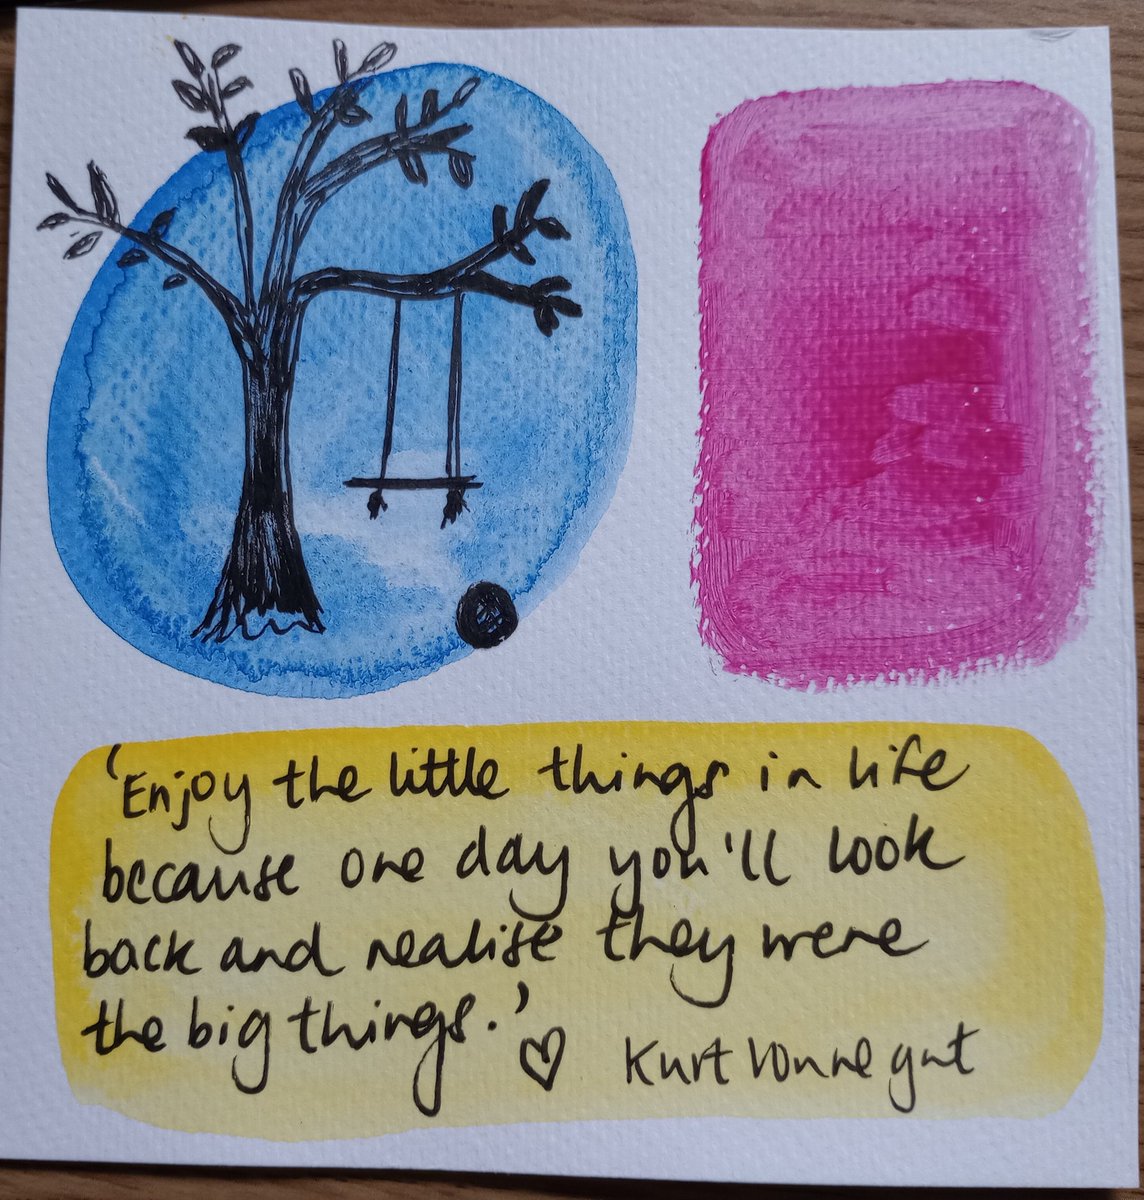 'Enjoy the little things in life
because one day you'll look
back and realise they were
the big things.'
Kurt Vonnegut